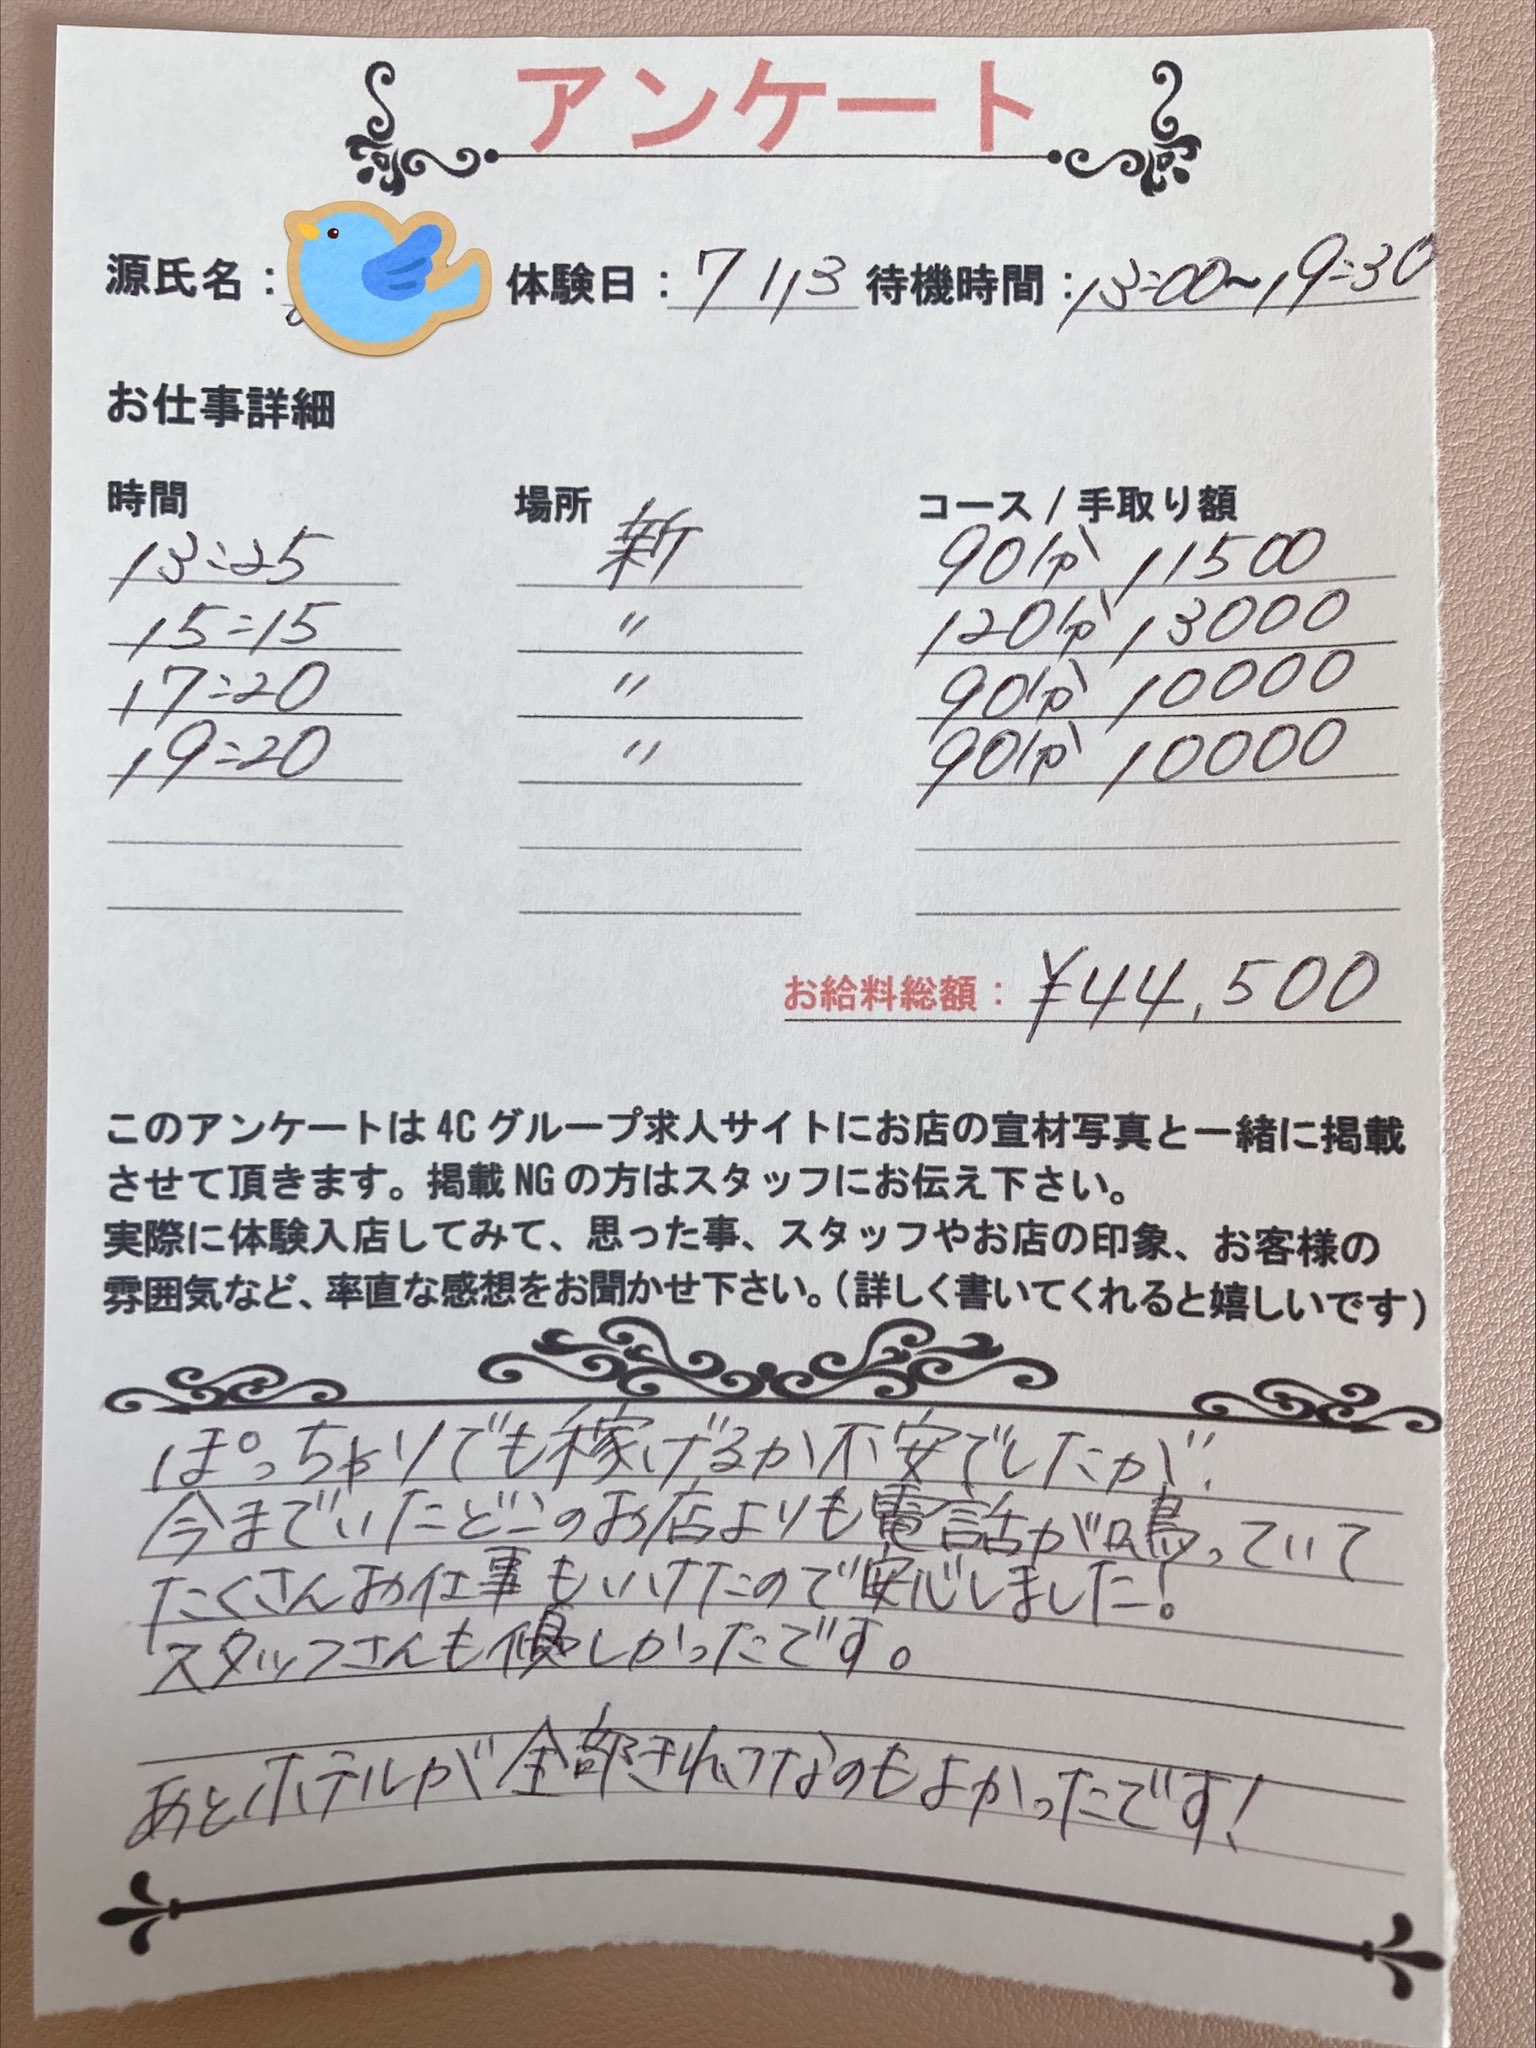 アンケート
源氏名： 体験日：7/13 待機時間：13:00〜19:30
お仕事詳細
時間 場所 コース/手取り額
13:25 新 90分 11500
15:15 〃 120分 13000
17:20 〃 90分 10000
19:20 〃 90分 10000
お給料総額：¥44,500
このアンケートは4Cグループ求人サイトにお店の宣材写真と一緒に掲載
させて頂きます。掲載NGの方はスタッフにお伝え下さい。
実際に体験入店してみて、思った事、スタッフやお店の印象、お客様の
雰囲気など、率直な感想をお聞かせ下さい。（詳しく書いてくれると嬉しいです）
ぽっちゃりでも稼げるか不安でしたが、
今までいたどこのお店よりも電話が鳴っていて
たくさんお仕事もいけたので安心しました！
スタッフさんも優しかったです。
あとホテルが全部きれいなのもよかったです！